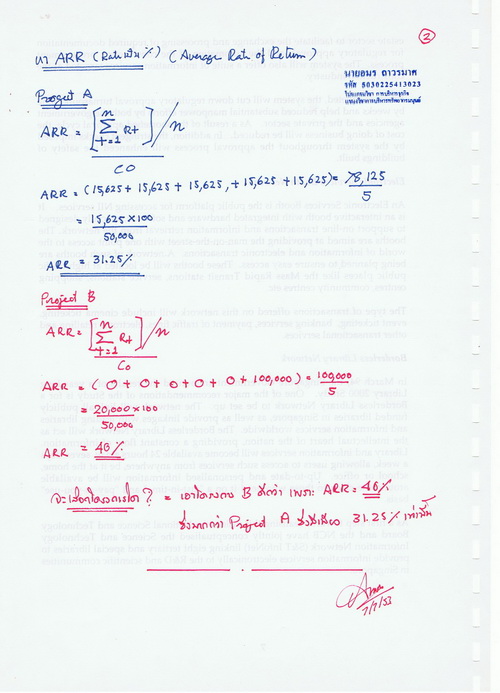 2
หา ARR (Rate เป็น %) (Average Rate of Return)
นายอมร ถาวรมาศ
รหัส 5030225413023
โปรแกรมวิชา การบริหารธุรกิจ
แขนงวิชาการบริหารทรัพยากรมนุษย์
Project A
ARR = [n∑t=1 Rt]/n
CO
ARR = (15,625 + 15,625 + 15,625, + 15,625 + 15,625) = 78,125
5
= 15,625 x 100
50,000
ARR = 31.25%
Project B
ARR = [n∑t=1 Rt]/n
Co
ARR = (0 + 0 + 0 + 0 + 0 + 100,000) = 100,000
5
= 20,000 x 100
50,000
ARR = 40%
จะเลือกโครงการใด? = เอาโครงการ B ดีกว่า เพราะ ARR = 40%
ซึ่งมากกว่า Project A ซึ่งมีเพียง 31.25% เท่านั้น
7/7/53